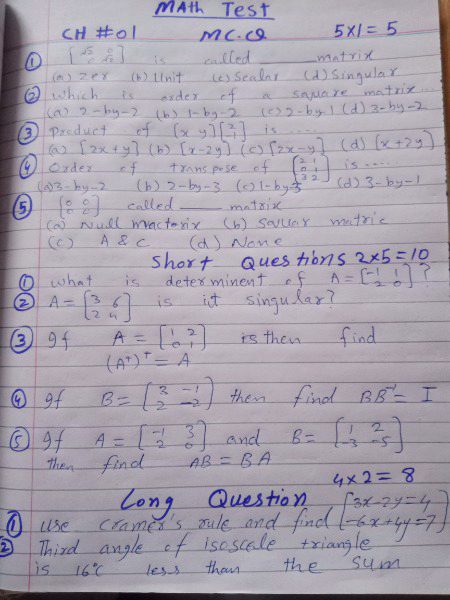 MAth Test
CH #01 M.C.Q 5x1=5
① [√5 0 0 √5] is called ____ matrix
(a) zer (b) Unit (c) Scalar (d) Singular
② Which is order of a square matrix..
(a) 2-by-2 (b) 1-by-2 (c) 2-by-1 (d) 3-by-2
③ Product of [x y][2 -1] is .....
(a) [2x+y] (b) [x-2y] (c) [2x-y] (d) [x+2y]
④ Order of transpose of [2 1 0 1 3 2] is .....
(a) 3-by-2 (b) 2-by-3 (c) 1-by-3 (d) 3-by-1
⑤ [0 0 0 0] called ____ matrix
(a) Null mactorix (b) Squar matric
(c) A & C (d) None
Short Questions 2x5=10
① what is determinent of A=[-1 1 2 0]?
② A=[3 6 2 4] is it singular?
③ If A=[1 2 0 1] is then find
(A^t)^t = A
④ If B=[3 -1 2 -2] then find BB⁻¹= I
⑤ If A=[-1 3 2 0] and B=[1 2 -3 -5]
then find AB=BA
4x2=8
Long Question
① use cramer's rule and find [3x-2y=4 -6x+4y=7]
② Third angle of isoscale triangle
is 16°c less than the sum